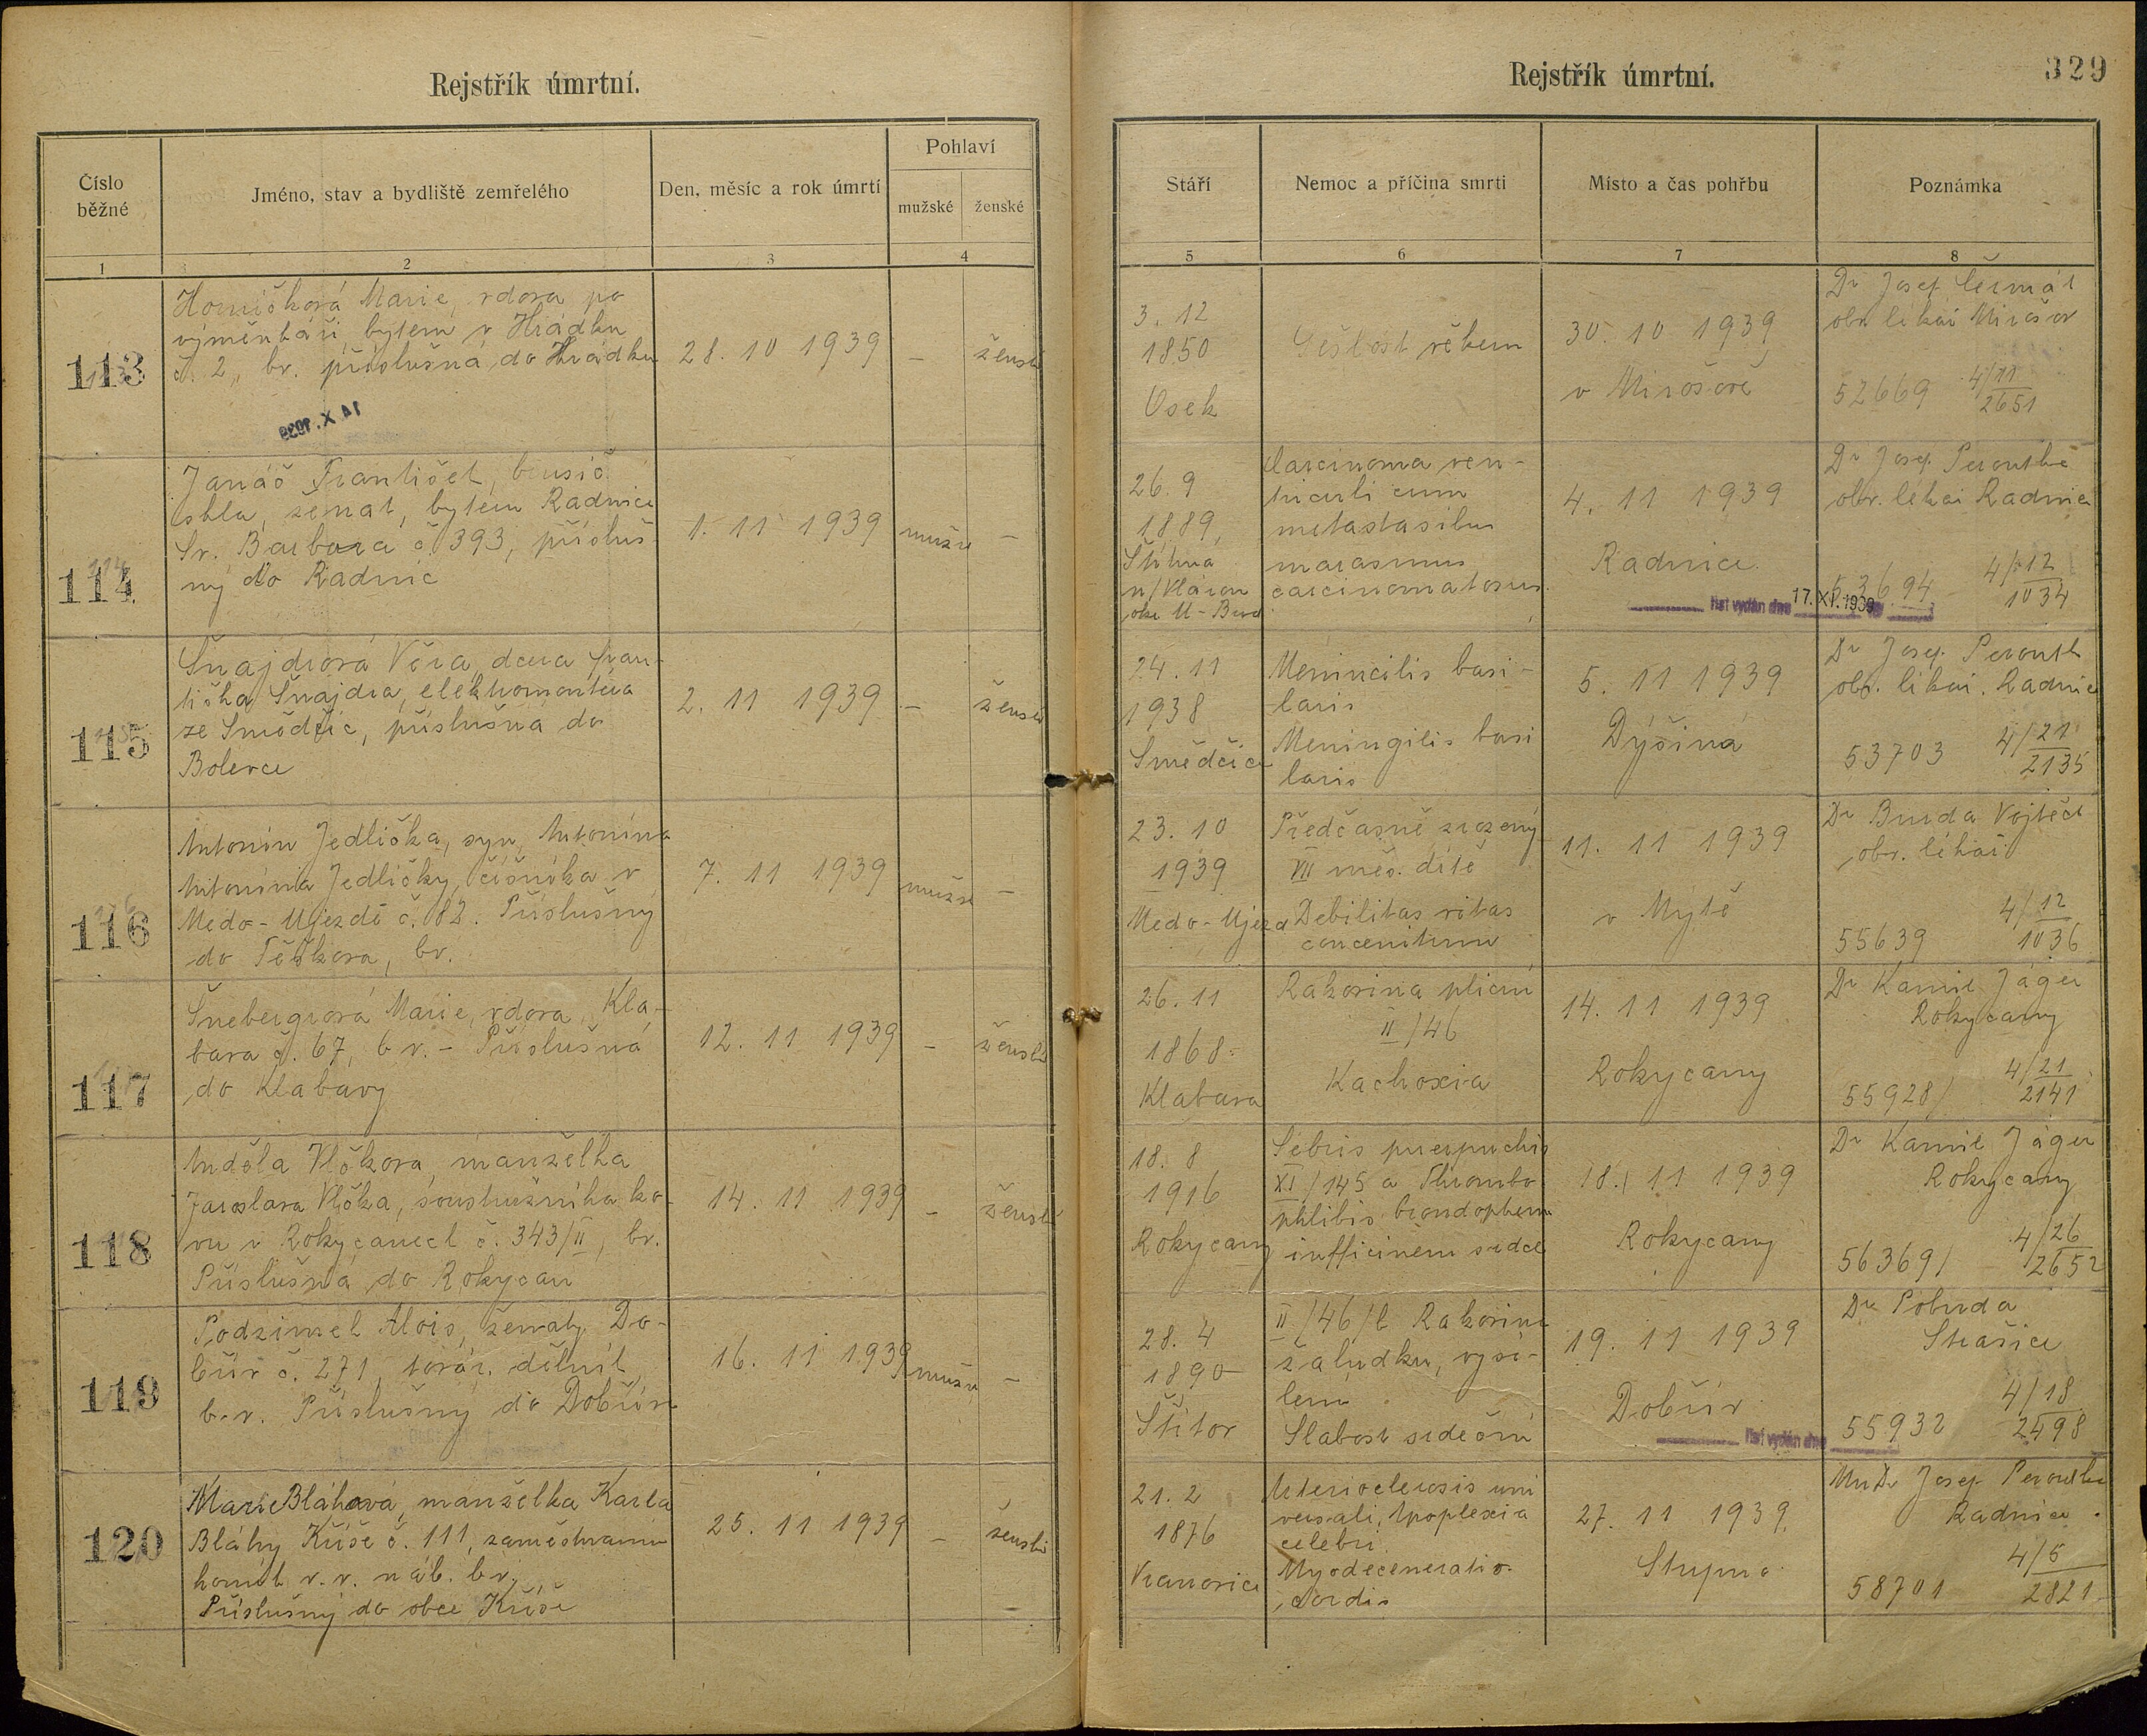 Rejstřík úmrtní.
Číslo běžné
Jméno, stav a bydliště zemřelého
Den, měsíc a rok úmrtí
Pohlaví
mužské
ženské
1
2
3
4
Rejstřík úmrtní.
329
Stáří
Nemoc a příčina smrti
Místo a čas pohřbu
Poznámka
5
6
7
8
113
Marie, vdova po
výměnkáři, bytem v Hrádku
č. 2, bv. příslušná do Hrádku
28. 10 1939
–
3. 12
1850
Osek
Sešlost věkem
30. 10 1939
v Mirošově
Dr Josef
obv lékař Mirošov
52669
4/11
2651
114
Janáč František, brusič
skla, ženat, bytem Radnice
Sv. Barbora č. 393, přísluš
ný do Radnic
1. 11 1939
–
26. 9
1889,
Carcinoma ven-
triculi cum
marasmus
carcinomatosus
4. 11 1939
Radnice
Dr Josef
obv. lékař Radnice
53694
4/12
1034
list vydán dne 17. XI. 1939
115
Šnajdrová Věra, dcera Fran-
tiška Šnajdra, elektromontéra
ze Smědčic, příslušná do
Bolevce
2. 11 1939
–
24. 11
1938
Smědčice
basi-
laris
basi
laris
5. 11 1939
Dýšina
Dr Josef
obv. lékař. Radnice
53703
4/21
2135
116
Antonín Jedlička, syn Antonína
Antonína Jedličky, číšníka v
Medo-Ujezdě č. 82. Příslušný
do Těškova, bv.
7. 11 1939
–
23. 10
1939
Medo-Ujezd
Předčasně zrozený
VII měs. dítě
Debilitas vitas
11. 11 1939
v Mýtě
Dr Burda Vojtěch
obv. lékař
55639
4/12
1036
117
Marie, vdova, Kla-
bava č. 67, bv. - Příslušná
do Klabavy
12. 11 1939
–
26. 11
1868
Klabava
Rakovina plicní
II/46
Kachoxia
14. 11 1939
Rokycany
Dr Kamil Jäger
Rokycany
55928/
4/21
2141
118
Anděla Vlčkova, manželka
Jaroslava Vlčka, soustružníka ko-
vu v Rokycanech č. 343/II, bv.
Příslušná do Rokycan
14. 11 1939
–
18. 8
1916
Rokycany
XI/145 a Thrombo
srdce
18. 11 1939
Rokycany
Dr Kamil Jäger
Rokycany
56369/
4/26
2652
119
Podzimek Alois, ženatý, Do-
břív č. 271, továr. dělník,
b.v. Příslušný do Dobříva
16. 11 1939
–
28. 4
1890
Štítov
II/46/b Rakovina
žaludku, vysí-
lení
Slabost srdeční
19. 11 1939
Dobřív
list vydán dne
Dr Pobuda
Strašice
55932
4/18
2498
120
Marie Bláhová, manželka Karla
Bláhy Kříše č. 111, zaměstnáním
horník v. v. náb. bv.
Příslušný do obce Kříše
25. 11 1939
–
21. 2
1876
Vranovice
uni
versali, Apoplexia
celebri
Myodeceneratio
cordis
27. 11 1939
Stupno
MuDr Josef
Radnice
58701
4/5
2821